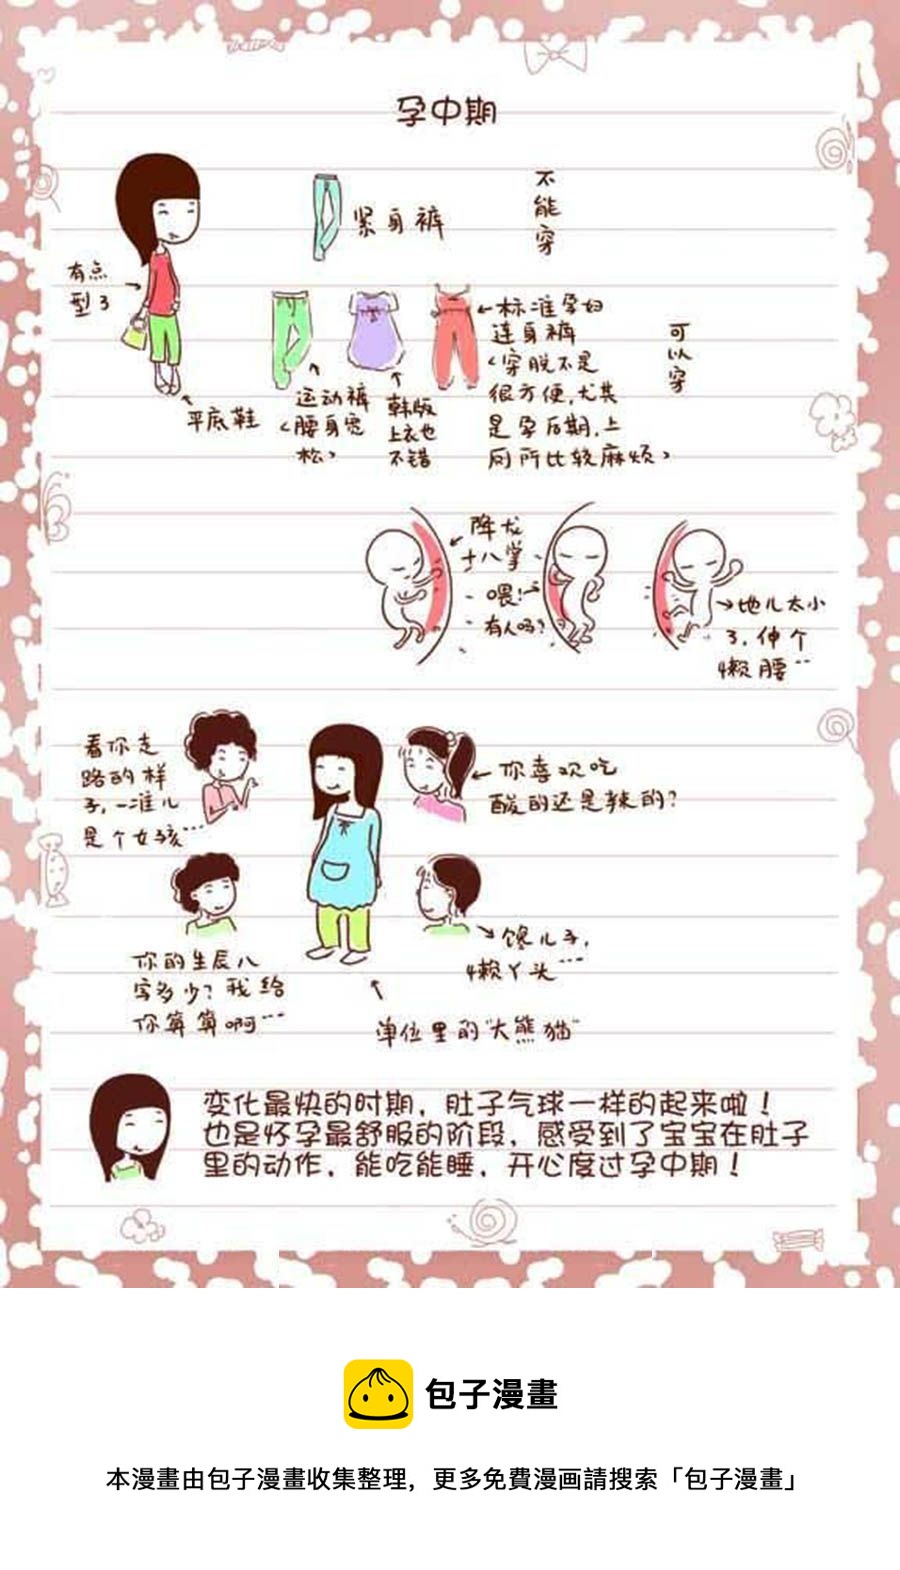 孕中期
紧身裤
不
能
穿
有点
型了
平底鞋
运动裤
(腰身宽
松)
韩版
上衣也
不错
标准孕妇
连身裤
(穿脱不是
很方便,尤其
是孕后期,上
厕所比较麻烦)
可
以
穿
降龙
十八掌
喂!
有人吗?
地儿太小
了,伸个
懒腰
看你走
路的样
子,一准儿
是个女孩…
你喜欢吃
酸的还是辣的?
你的生辰八
字多少?我给
你算算啊…
馋儿子,
懒丫头…
单位里的"大熊猫"
变化最快的时期,肚子气球一样的起来啦!
也是怀孕最舒服的阶段,感受到了宝宝在肚子
里的动作,能吃能睡,开心度过孕中期!
包子漫畫
本漫畫由包子漫畫收集整理,更多免費漫画請搜索「包子漫畫」